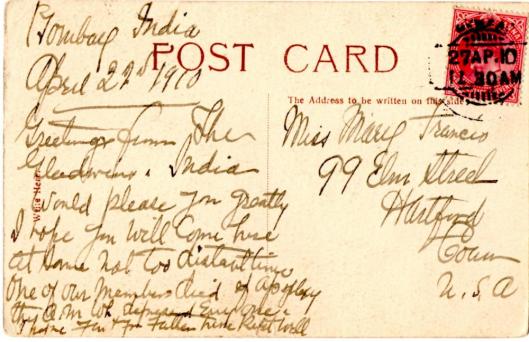 Bombay India
POST CARD
April 22nd 1910
27 AP. 10
11.30 AM
The Address to be written on this side
Write Here
Greetings from The
India
Would please you greatly
I hope you will Come here
at some not too distant time
One of our Members died of apoplexy
this A.M.
Miss Mary Francis
99 Elm Street
Hartford
Conn
U.S.A